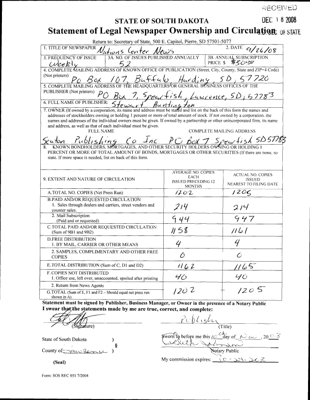 RECEIVED
DEC 18 2008
STATE OF SOUTH DAKOTA
Statement of Legal Newspaper Ownership and Circulation
OF STATE
Return to: Secretary of State, 500 E. Capitol, Pierre, SD 57501-5077
1. TITLE OF NEWSPAPER Nations Center News
2. DATE 9/26/08
3. FREQUENCY OF ISSUE weekly
3A. NO. OF ISSUES PUBLISHED ANNUALLY 52
3B. ANNUAL SUBSCRIPTION PRICE $
4. COMPLETE MAILING ADDRESS OF KNOWN OFFICE OF PUBLICATION (Street, City, County, State and ZIP+4 Code) (Not printers)
Po Box 107, Buffalo Harding SD, 57720
5. COMPLETE MAILING ADDRESS OF THE HEADQUARTERS OR GENERAL BUSINESS OFFICES OF THE PUBLISHER (Not printers)
PO Box 7, Spearfish, Lawrence, SD, 57783
6. FULL NAME OF PUBLISHER: Stewart Huntington
7. OWNER (If owned by a corporation, its name and address must be stated and also the names and
addresses of stockholders owning or holding 1 percent or more of total amount of stock. If not owned by a corporation, the
names and addresses of the individual owners must be given. If owned by a partnership or other unincorporated firm, its name
and address, as well as that of each individual must be given.
FULL NAME COMPLETE MAILING ADDRESS
Seaton Publishing Co Inc PO Box 7 Spearfish SD 57783
8. KNOWN BONDHOLDERS, MORTGAGES, AND OTHER SECURITY HOLDERS OWNING OR HOLDING 1
PERCENT OR MORE OF TOTAL AMOUNT OF BONDS, MORTGAGES OR OTHER SECURITIES (If there are none, so
state. If more space is needed, list on back of this form.
9. EXTENT AND NATURE OF CIRCULATION
AVERAGE NO. COPIES EACH ISSUED PRECEDING 12 MONTHS
ACTUAL NO. COPIES ISSUED NEAREST TO FILING DATE
A. TOTAL NO. COPIES (Net Press Run) 1202
B. PAID AND/OR REQUESTED CIRCULATION
1. Sales through dealers and carriers, street vendors and counter sales. 214 214
2. Mail Subscription (Paid and or requested) 944 947
C. TOTAL PAID AND/OR REQUESTED CIRCULATION (Sum of 9B1 and 9B2) 1158 1161
D. FREE DISTRIBUTION
1. BY MAIL, CARRIER OR OTHER MEANS 4 4
2. SAMPLES, COMPLIMENTARY AND OTHER FREE COPIES 0 0
E. TOTAL DISTRIBUTION (Sum of C, D1 and D2) 1162 1165
F. COPIES NOT DISTRIBUTED
1. Office use, left over, unaccounted, spoiled after printing 40 40
2. Return from News Agents
G. TOTAL (Sum of E, F1 and F2 - Should equal net press run shown in A) 1202 1205
Statement must be signed by Publisher, Business Manager, or Owner in the presence of a Notary Public
I swear that the statements made by me are true, correct, and complete:
Publisher
(Signature) (Title)
State of South Dakota )
) §
County of )
Sworn to before me this day of
Notary Public
(Seal)
My commission expires:
Form: SOS REC 051 7/2004